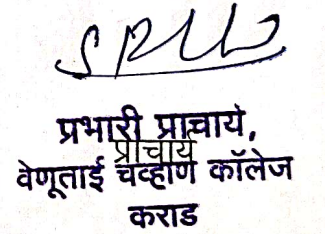 प्रभारी प्राचार्य,
प्राचार्य
वेणूताई चव्हाण कॉलेज
कराड